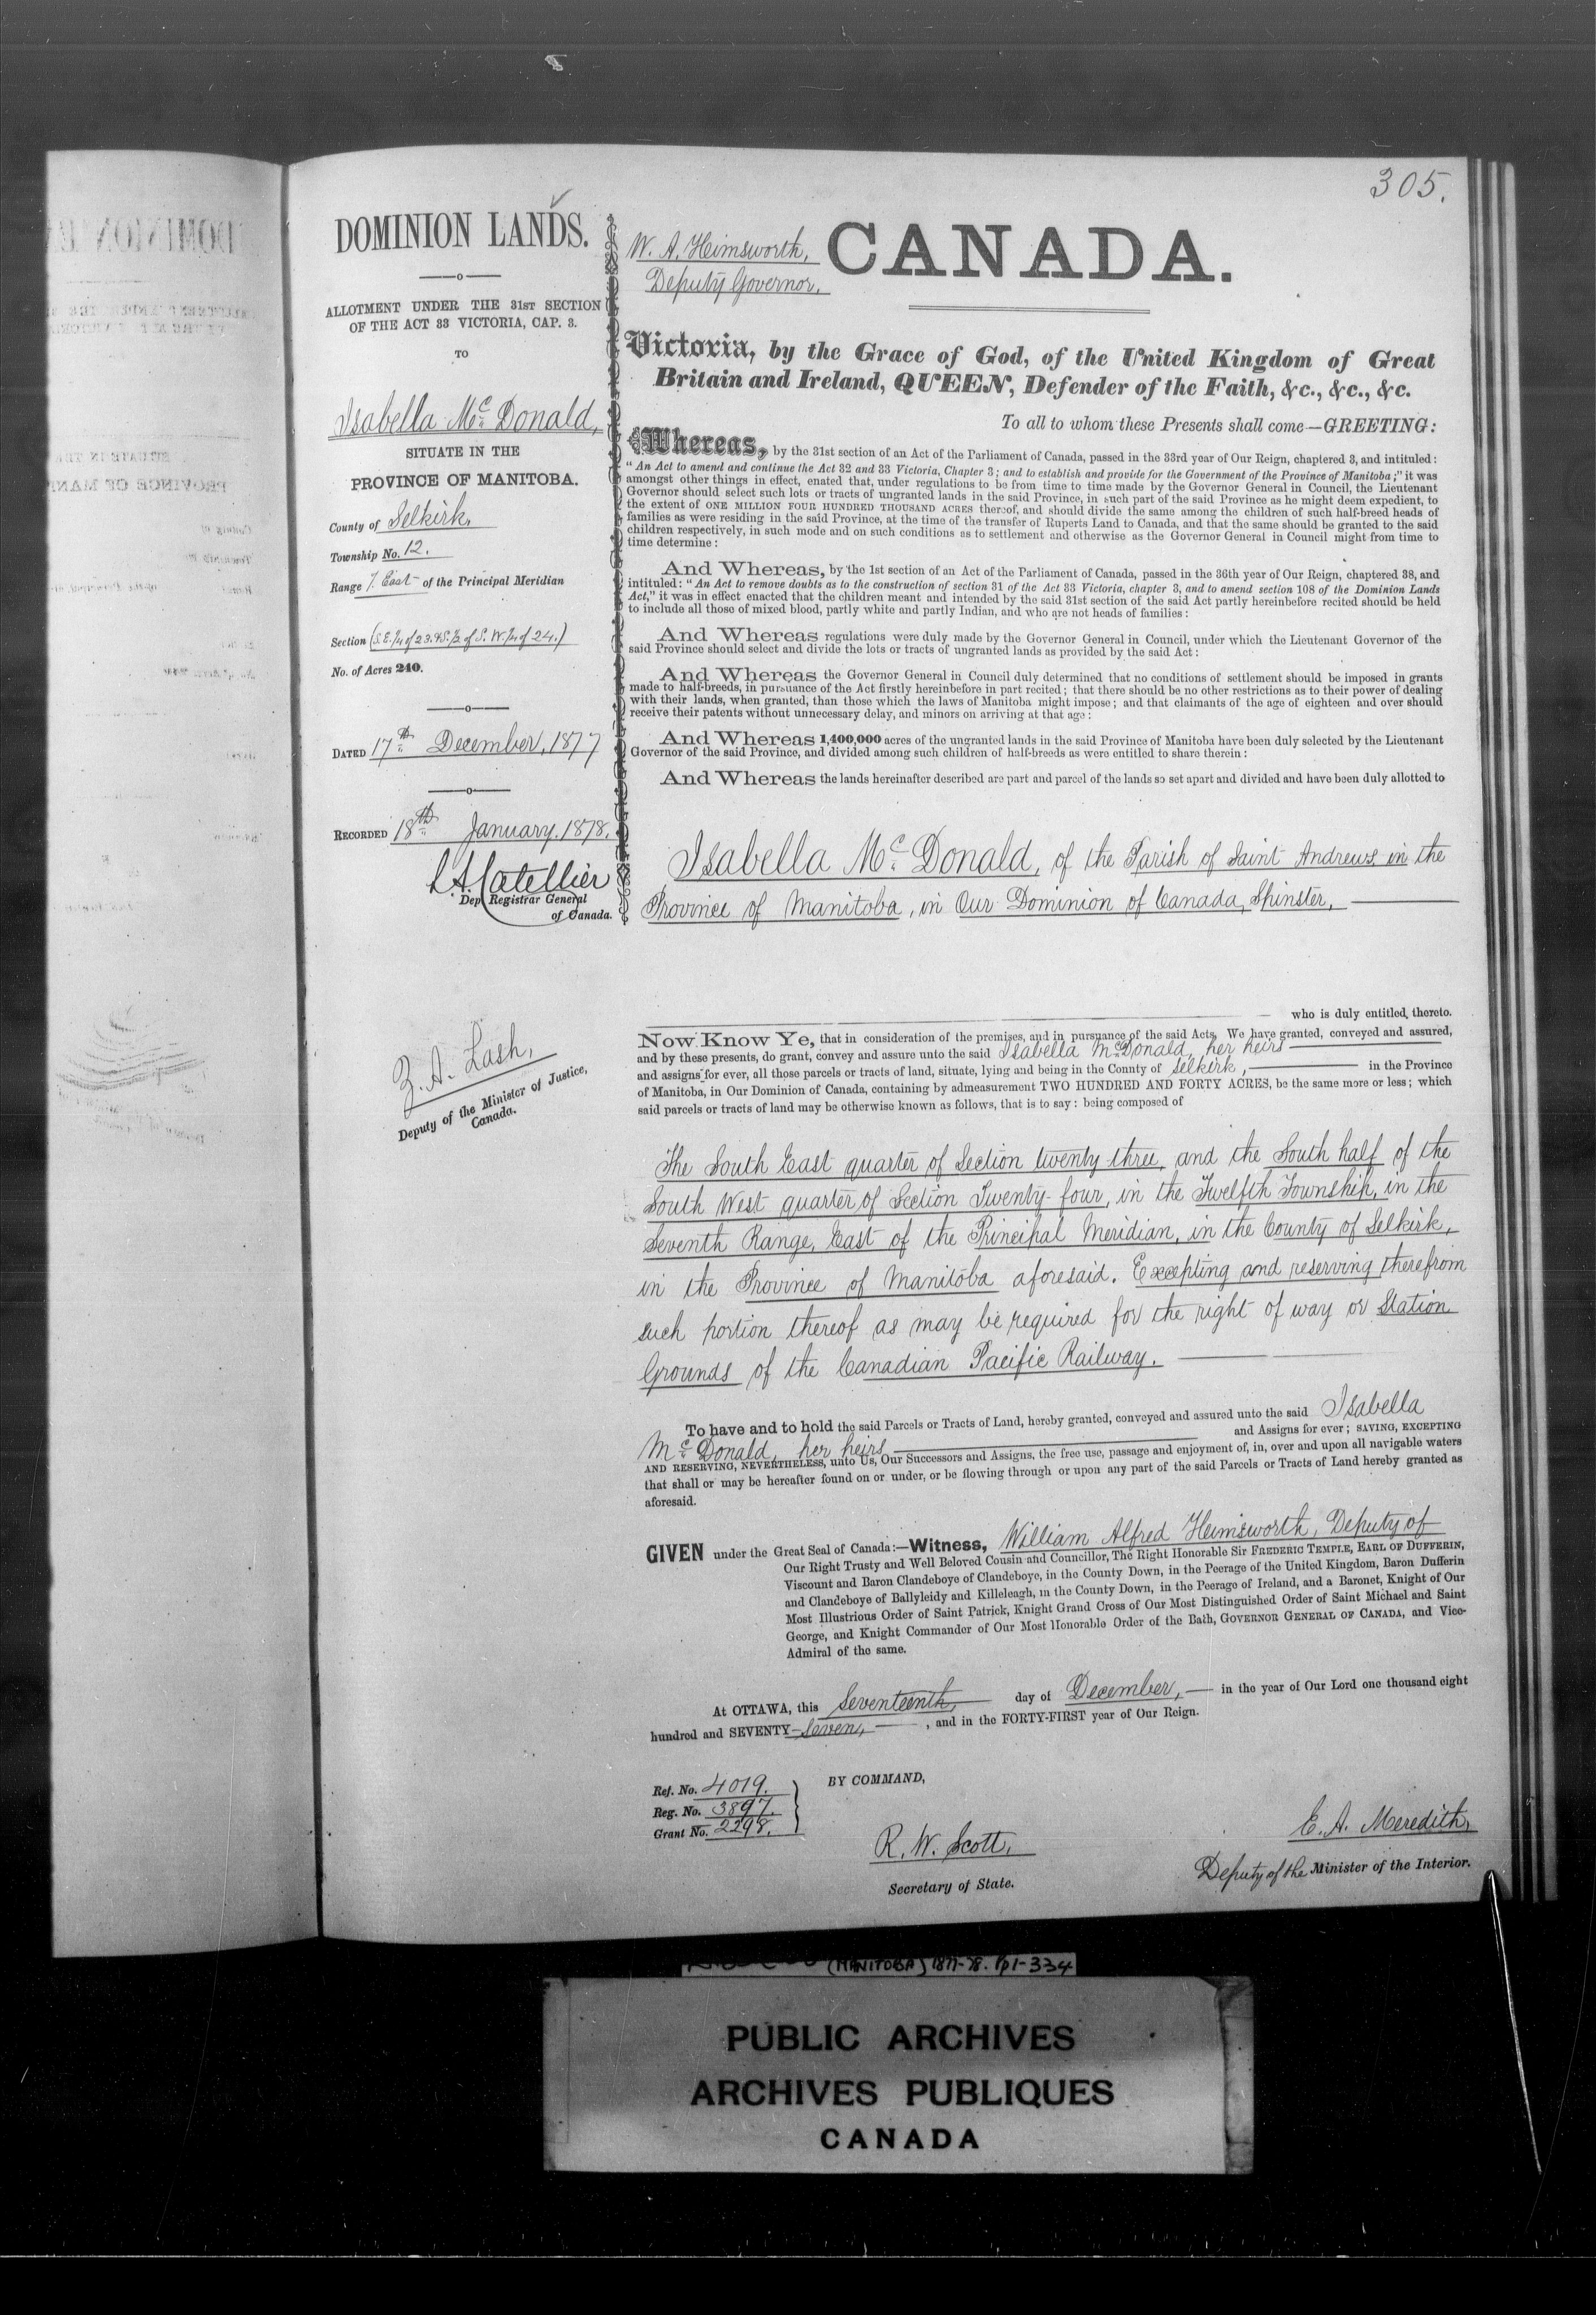 305.
DOMINION LANDS.
ALLOTMENT UNDER THE 31ST SECTION
OF THE ACT 33 VICTORIA, CAP. 3.
TO
Isabella Mc Donald,
SITUATE IN THE
PROVINCE OF MANITOBA.
County of Selkirk,
Township No. 12.
Range 7. East of the Principal Meridian
Section (S.E. 1/4 of 23. & S. 1/2 of S. W. 1/4 of 24.)
No. of Acres 240.
DATED 17th December, 1877
RECORDED 18th January. 1878.
L A Catellier
Dep Registrar General
of Canada.
Z. A. Lash,
Deputy of the Minister of Justice,
Canada.
W. A. Himsworth,
Deputy Governor.
CANADA.
Victoria, by the Grace of God, of the United Kingdom of Great
Britain and Ireland, QUEEN, Defender of the Faith, &c., &c., &c.
To all to whom these Presents shall come—GREETING:
Whereas, by the 31st section of an Act of the Parliament of Canada, passed in the 33rd year of Our Reign, chaptered 3, and intituled:
"An Act to amend and continue the Act 32 and 33 Victoria, Chapter 3; and to establish and provide for the Government of the Province of Manitoba;" it was
amongst other things in effect, enated that, under regulations to be from time to time made by the Governor General in Council, the Lieutenant
Governor should select such lots or tracts of ungranted lands in the said Province, in such part of the said Province as he might deem expedient, to
the extent of ONE MILLION FOUR HUNDRED THOUSAND ACRES thereof, and should divide the same among the children of such half-breed heads of
families as were residing in the said Province, at the time of the transfer of Ruperts Land to Canada, and that the same should be granted to the said
children respectively, in such mode and on such conditions as to settlement and otherwise as the Governor General in Council might from time to
time determine:
And Whereas, by the 1st section of an Act of the Parliament of Canada, passed in the 36th year of Our Reign, chaptered 38, and
intituled: "An Act to remove doubts as to the construction of section 31 of the Act 33 Victoria, chapter 3, and to amend section 108 of the Dominion Lands
Act," it was in effect enacted that the children meant and intended by the said 31st section of the said Act partly hereinbefore recited should be held
to include all those of mixed blood, partly white and partly Indian, and who are not heads of families:
And Whereas regulations were duly made by the Governor General in Council, under which the Lieutenant Governor of the
said Province should select and divide the lots or tracts of ungranted lands as provided by the said Act:
And Whereas the Governor General in Council duly determined that no conditions of settlement should be imposed in grants
made to half-breeds, in pursuance of the Act firstly hereinbefore in part recited; that there should be no other restrictions as to their power of dealing
with their lands, when granted, than those which the laws of Manitoba might impose; and that claimants of the age of eighteen and over should
receive their patents without unnecessary delay, and minors on arriving at that age:
And Whereas 1,400,000 acres of the ungranted lands in the said Province of Manitoba have been duly selected by the Lieutenant
Governor of the said Province, and divided among such children of half-breeds as were entitled to share therein:
And Whereas the lands hereinafter described are part and parcel of the lands so set apart and divided and have been duly allotted to
Isabella Mc Donald, of the Parish of Saint Andrews in the
Province of Manitoba, in Our Dominion of Canada, Spinster,
who is duly entitled, thereto.
Now Know Ye, that in consideration of the premises, and in pursuance of the said Acts, We have granted, conveyed and assured,
and by these presents, do grant, convey and assure unto the said Isabella McDonald, her heirs
and assigns for ever, all those parcels or tracts of land, situate, lying and being in the County of Selkirk, in the Province
of Manitoba, in Our Dominion of Canada, containing by admeasurement TWO HUNDRED AND FORTY ACRES, be the same more or less; which
said parcels or tracts of land may be otherwise known as follows, that is to say: being composed of
The South East quarter of Section twenty-three, and the South half of the
South West quarter of Section Twenty-four, in the Twelfth Township, in the
Seventh Range, East of the Principal Meridian, in the County of Selkirk,
in the Province of Manitoba aforesaid. Excepting and reserving therefrom
such portion thereof as may be required for the right of way or Station
Grounds of the Canadian Pacific Railway.
To have and to hold the said Parcels or Tracts of Land, hereby granted, conveyed and assured unto the said Isabella
Mc Donald, her heirs and Assigns for ever; SAVING, EXCEPTING
AND RESERVING, NEVERTHELESS, unto Us, Our Successors and Assigns, the free use, passage and enjoyment of, in, over and upon all navigable waters
that shall or may be hereafter found on or under, or be flowing through or upon any part of the said Parcels or Tracts of Land hereby granted as
aforesaid.
GIVEN under the Great Seal of Canada:—Witness, William Alfred Himsworth, Deputy of
Our Right Trusty and Well Beloved Cousin and Councillor, The Right Honorable Sir FREDERIC TEMPLE, EARL OF DUFFERIN,
Viscount and Baron Clandeboye of Clandeboye, in the County Down, in the Peerage of the United Kingdom, Baron Dufferin
and Clandeboye of Ballyleidy and Killeleagh, in the County Down, in the Peerage of Ireland, and a Baronet, Knight of Our
Most Illustrious Order of Saint Patrick, Knight Grand Cross of Our Most Distinguished Order of Saint Michael and Saint
George, and Knight Commander of Our Most Honorable Order of the Bath, GOVERNOR GENERAL OF CANADA, and Vice-
Admiral of the same.
At OTTAWA, this Seventeenth, day of December, in the year of Our Lord one thousand eight
hundred and SEVENTY-Seven, , and in the FORTY-FIRST year of Our Reign.
Ref. No. 4019.
Reg. No. 3897.
Grant No. 2298.
BY COMMAND,
R. W. Scott,
Secretary of State.
E. A. Meredith,
Deputy of the Minister of the Interior.
(MANITOBA) 1877-78. pp1-334
PUBLIC ARCHIVES
ARCHIVES PUBLIQUES
CANADA